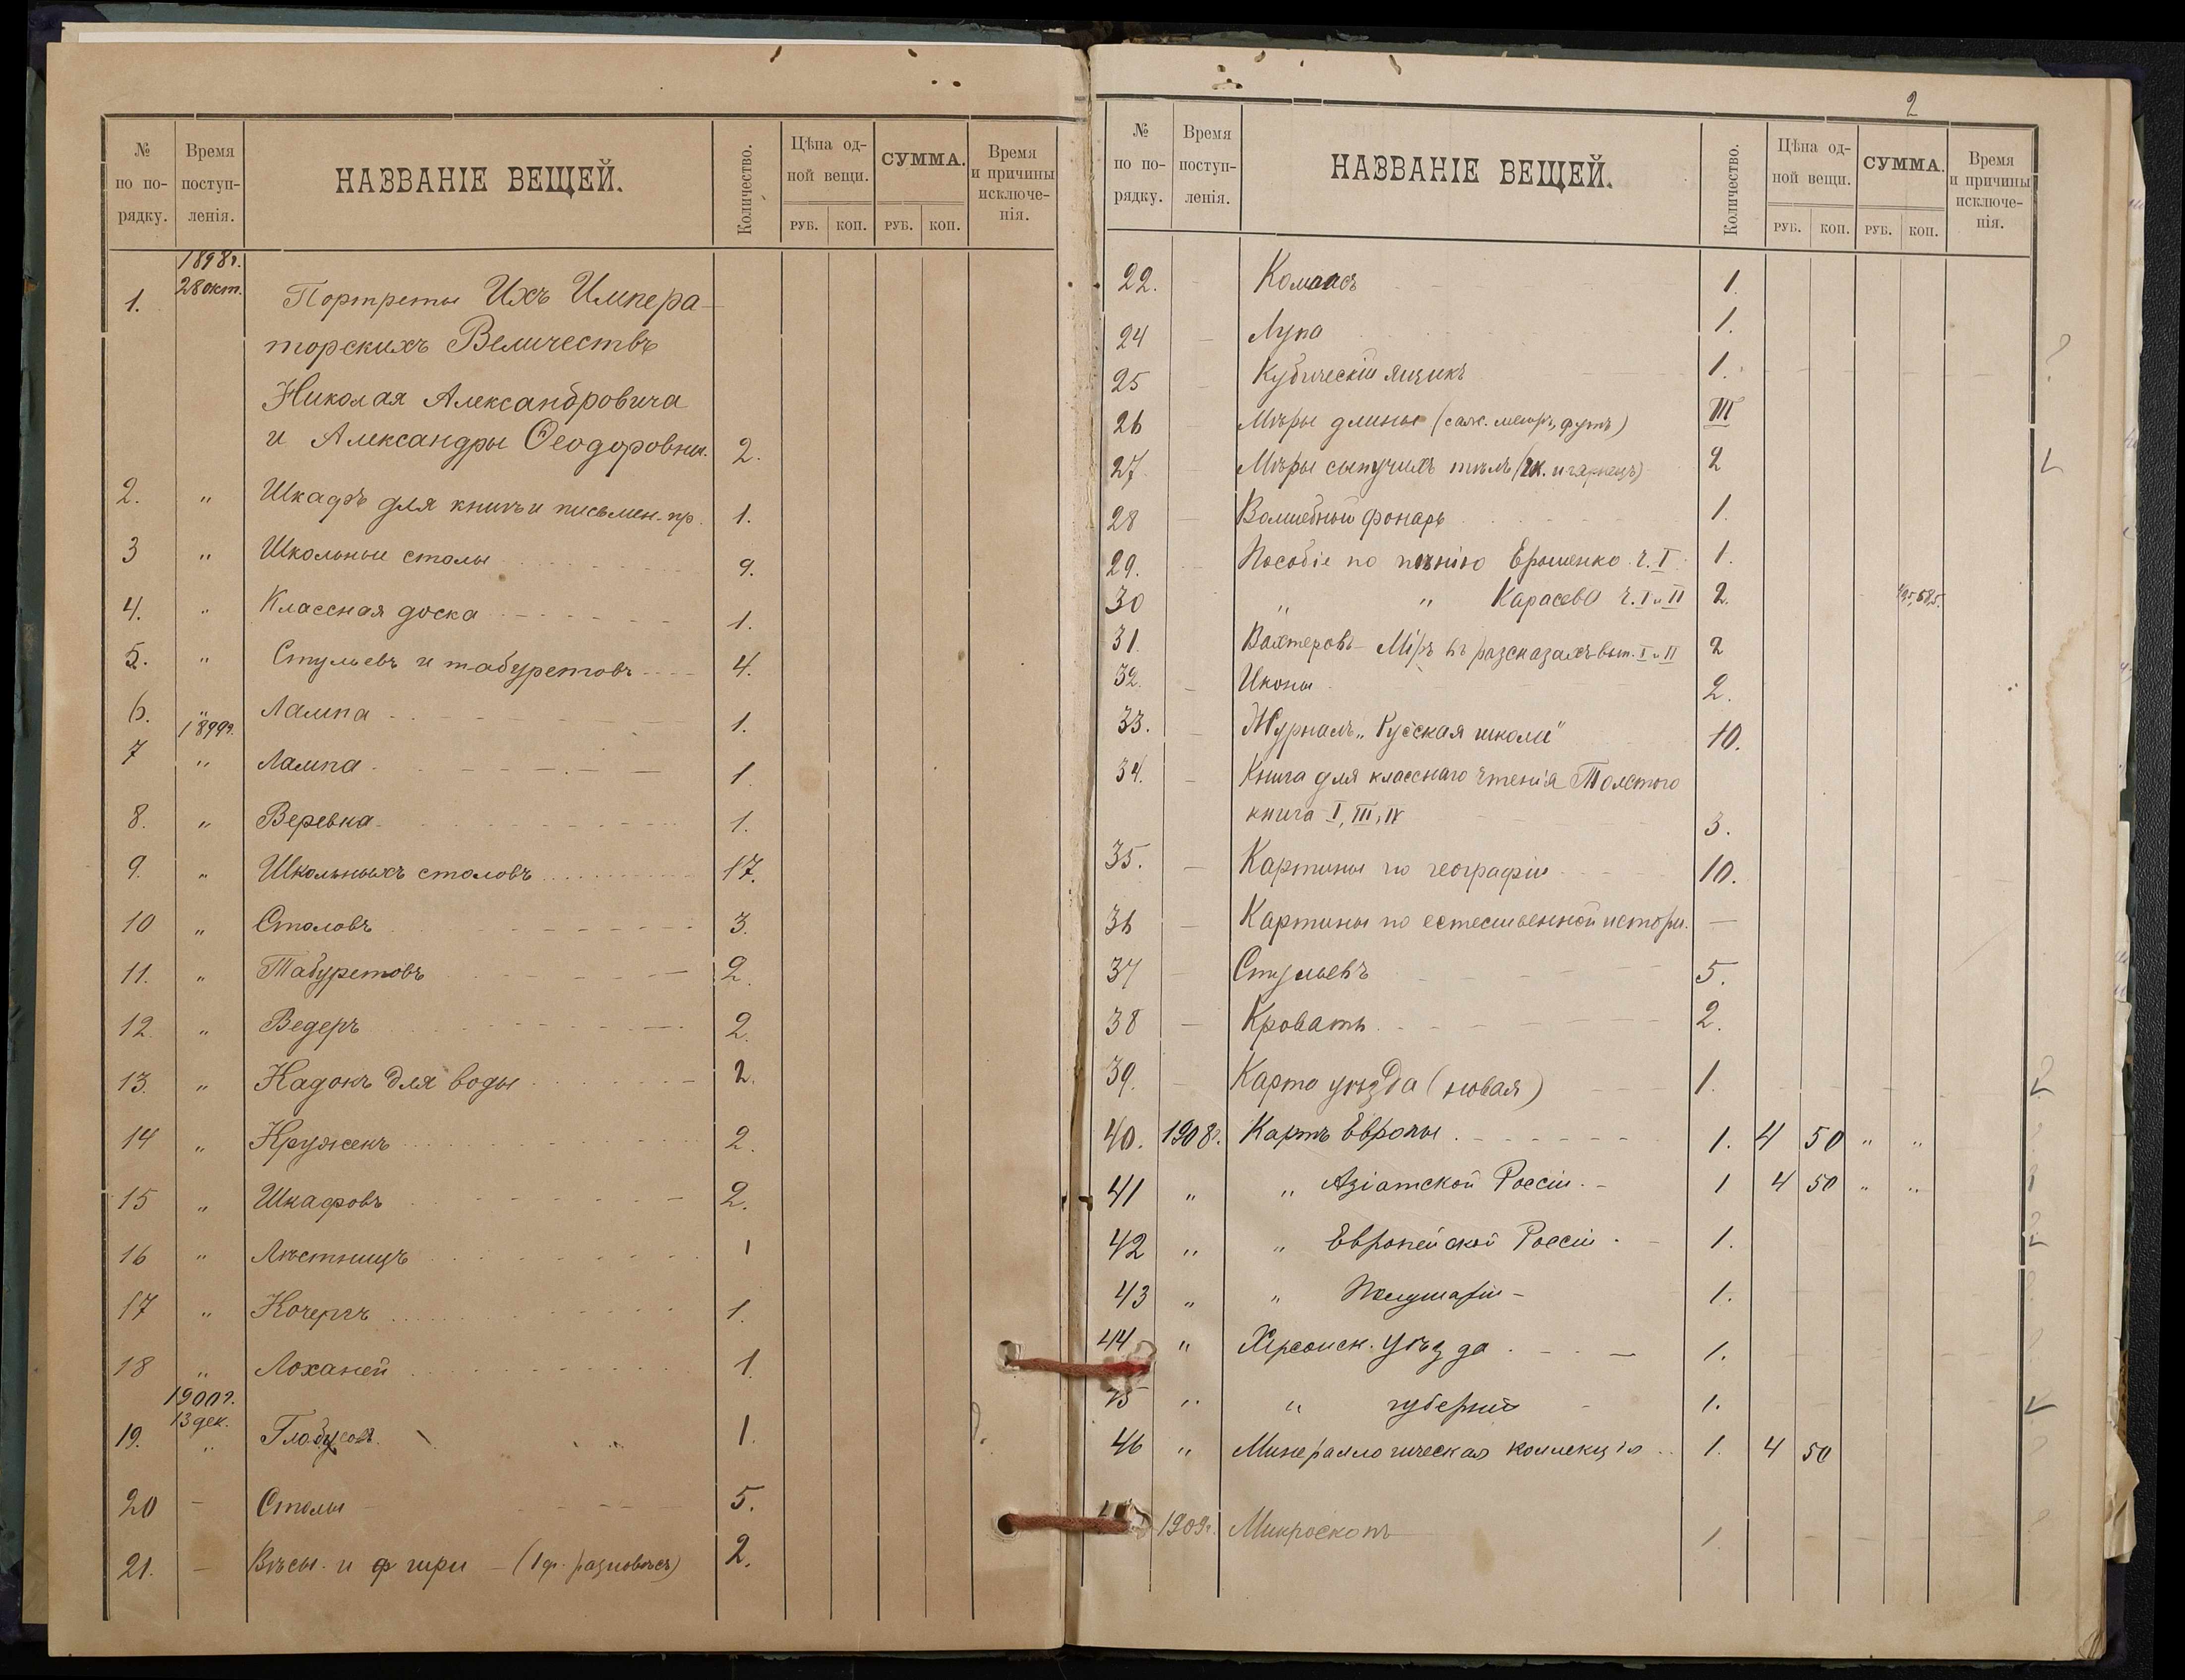 № по по-рядку. Время поступ-ленія. НАЗВАНІЕ ВЕЩЕЙ. Количество. Цѣна од-ной вещи. РУБ. КОП. СУММА. РУБ. КОП. Время и причины исключе-нія.
1898г.
28 окт.
1. Портреты Ихъ Импера-
торскихъ Величествъ
Николая Александровича
и Александры Ѳеодоровны. 2.
2. " Шкафъ для книгъ и письмен. пр. 1.
3 " Школьные столы 9.
4. " Классная доска 1.
5. " Стульевъ и табуретовъ 4.
6. " Лампа 1.
1899г.
7 " Лампа 1.
8. " Веревка 1.
9. " Школьныхъ столовъ 17.
10 " Столовъ 3.
11. " Табуретовъ 2.
12. " Ведеръ 2.
13. " Кадокъ для воды 2.
14 " Кружекъ 2.
15 " Шкафовъ 2.
16 " Лѣстницъ 1
17 " Кочергъ 1.
18 " Лоханей 1.
1900г.
13 дек.
19. " Глобусовъ 1.
20 – Столы 5.
21. – Вѣсы и гири – (1 ф. разновѣсъ) 2.
2
№ по по-рядку. Время поступ-ленія. НАЗВАНІЕ ВЕЩЕЙ. Количество. Цѣна од-ной вещи. РУБ. КОП. СУММА. РУБ. КОП. Время и причины исключе-нія.
22. – Компасъ 1.
24 – Лупа 1.
25 – Кубическій ящикъ 1. ?
26 – Мѣры длины (саж. метръ, футъ) III
27 – Мѣры сыпучихъ тѣлъ ( и гарнецъ) 2
28 – Волшебный фонарь 1.
29. – Пособіе по пѣнію Ерошенко ч. I 1.
30 " " Карасева ч. I и II 2.
31. Вахтеровъ – Міръ въ разсказахъ вып. I и II 2
32. – Иконы 2.
33. – Журналъ „Русская школа" 10.
34. – Книга для класснаго чтенія Толстого
книга I, III, IV 3.
35. – Картины по географіи 10.
36 – Картины по естественной исторіи. —
37 – Стульевъ 5.
38 – Кровать 2.
39. Карта уѣзда (новая) 1. ?
40. 1908г. Картъ Европы 1. 4 50 " "
41 " " Азіатской Россіи. 1 4 50 " "
42 " " Европейской Россіи 1. ?
43 " " Полушарій – 1.
44 " Херсонск. уѣзда 1.
45 " " губерніи 1.
46 " Минераллогическая коллекція 1. 4 50
1909г. Микроскопъ 1.